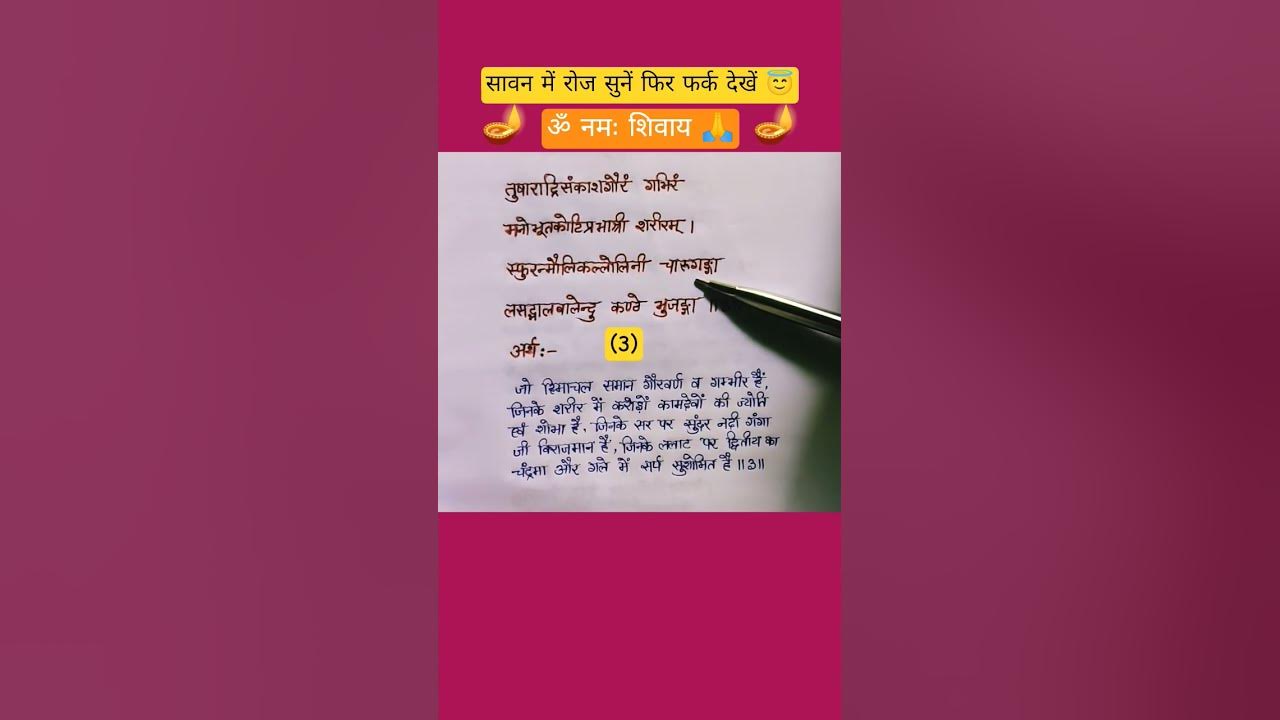 सावन में रोज सुनें फिर फर्क देखें 😇
ॐ नमः शिवाय 🙏
तुषाराद्रिसंकाशगौरं गभिरं
मनोभूतकोटिप्रभाश्री शरीरम् ।
स्फुरन्मौलिकल्लोलिनी चारुगङ्गा
लसद्भालबालेन्दु कण्ठे भुजङ्गा
अर्थ:- (3)
जो हिमाचल समान गौरवर्ण व गम्भीर हैं,
जिनके शरीर में करोड़ों कामदेवों की ज्योति
एवं शोभा है, जिनके सर पर सुंदर नदी गंगा
जी विराजमान हैं, जिनके ललाट पर द्वितीय का
चंद्रमा और गले में सर्प सुशोभित है ॥3॥